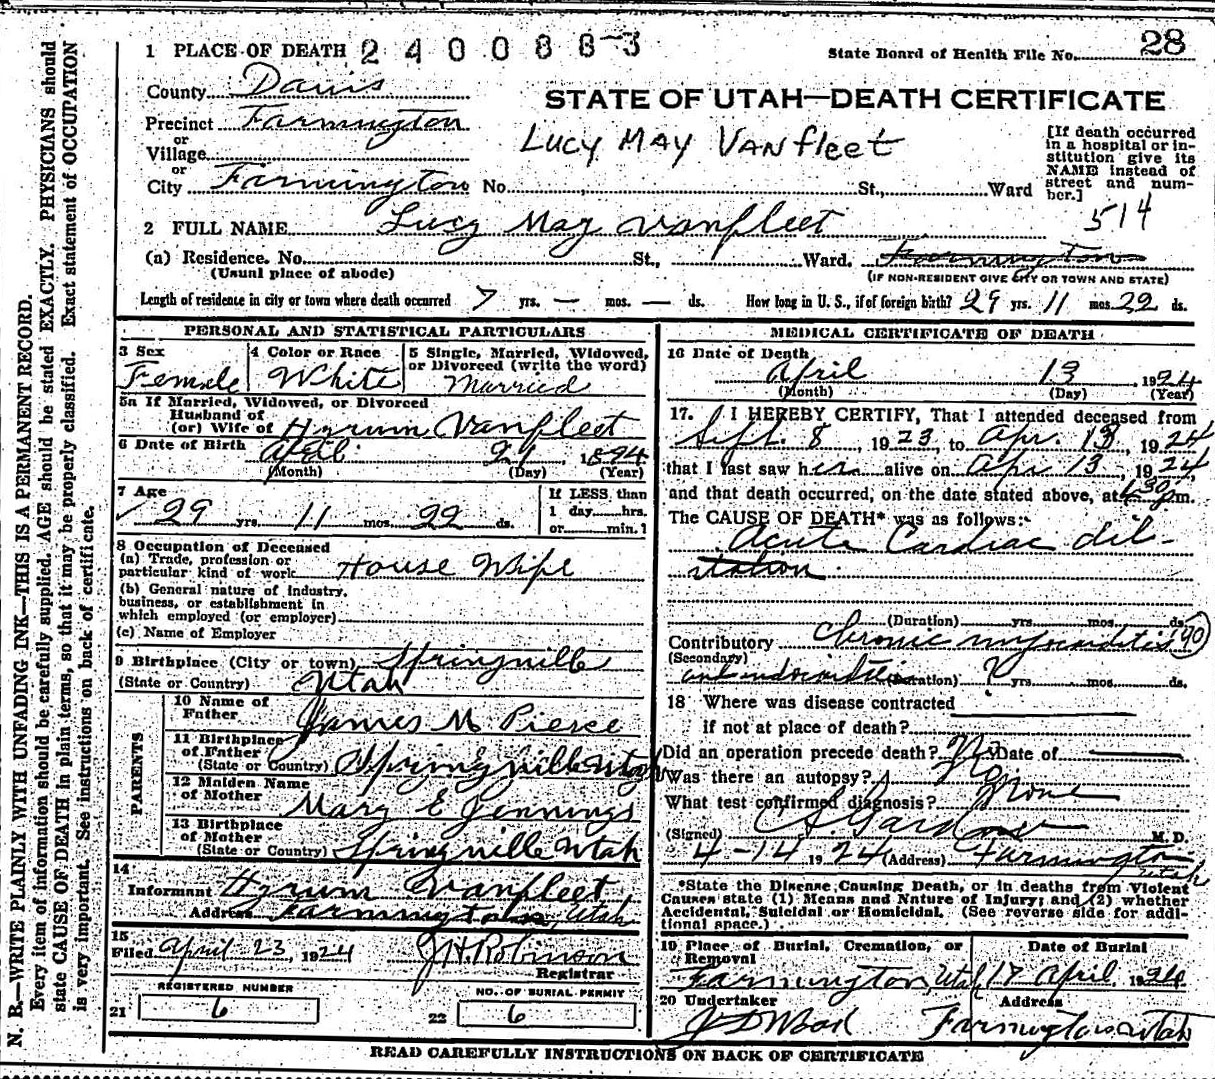 1 PLACE OF DEATH 2400883
State Board of Health File No. 28
County Davis
STATE OF UTAH—DEATH CERTIFICATE
Precinct Farmington
or
Village
or
City Farmington No. St., Ward
LUCY MAY VANfleet
[If death occurred
in a hospital or in-
stitution give its
NAME instead of
street and num-
ber.]
514
2 FULL NAME Lucy May Vanfleet
(a) Residence. No. St., Ward. Farmington
(Usual place of abode)
(IF NON-RESIDENT GIVE CITY OR TOWN AND STATE)
Length of residence in city or town where death occurred 7 yrs. — mos. — ds. How long in U. S., if of foreign birth? 29 yrs. 11 mos. 22 ds.
PERSONAL AND STATISTICAL PARTICULARS
3 Sex
Female
4 Color or Race
White
5 Single, Married, Widowed,
or Divorced (write the word)
Married
5a If Married, Widowed, or Divorced
Husband of
(or) Wife of Hyrum Vanfleet
6 Date of Birth April 21 1894
(Month) (Day) (Year)
7 Age
29 yrs. 11 mos. 22 ds.
If LESS than
1 day hrs.
or min.1
8 Occupation of Deceased
(a) Trade, profession or
particular kind of work House Wife
(b) General nature of industry,
business, or establishment in
which employed (or employer)
(c) Name of Employer
9 Birthplace (City or town) Springville
(State or Country) Utah
PARENTS
10 Name of
Father James M Pierce
11 Birthplace
of Father
(State or Country) Springville Utah
12 Maiden Name
of Mother Mary E Jennings
13 Birthplace
of Mother
(State or Country) Springville Utah
14
Informant Hyrum Vanfleet
Address Farmington, Utah
15
Filed April 23, 1924 J H Robinson
Registrar
REGISTERED NUMBER
21 6
NO. OF BURIAL PERMIT
22 6
MEDICAL CERTIFICATE OF DEATH
16 Date of Death
April 13, 1924
(Month) (Day) (Year)
17. I HEREBY CERTIFY, That I attended deceased from
Sept. 8, 1923, to Apr. 13, 1924
that I last saw her alive on Apr 13, 1924,
and that death occurred, on the date stated above, at m.
The CAUSE OF DEATH* was as follows:
Acute Cardiac dil-
itation
(Duration) yrs. mos. ds.
Contributory Chronic myocarditis 90
(Secondary)
and endocarditis (Duration) yrs. mos. ds.
18 Where was disease contracted
if not at place of death?
Did an operation precede death? No Date of
Was there an autopsy? No
What test confirmed diagnosis? None
(Signed) C A Gardner M. D.
4-14 1924 (Address) Farmington
Utah
*State the Disease Causing Death, or in deaths from Violent
Causes state (1) Means and Nature of Injury; and (2) whether
Accidental, Suicidal or Homicidal. (See reverse side for addi-
tional space.)
19 Place of Burial, Cremation, or
Removal
Farmington, Utah
Date of Burial
17 April, 1924
20 Undertaker
Address
Farmington Utah
READ CAREFULLY INSTRUCTIONS ON BACK OF CERTIFICATE
N. B.—WRITE PLAINLY WITH UNFADING INK—THIS IS A PERMANENT RECORD.
Every item of information should be carefully supplied. AGE should be stated EXACTLY. PHYSICIANS should
state CAUSE OF DEATH in plain terms, so that it may be properly classified. Exact statement of OCCUPATION
is very important. See instructions on back of certificate.